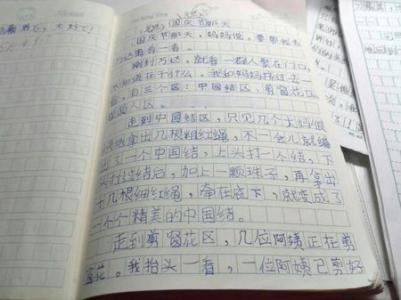 国庆节那天
国庆节那天,妈妈说,要带我去
万达看一看。
刚到万达,就看一群人聚在门口,
不知道在干什么。我和妈妈挤过去一
看,有三个区:中国结区,剪窗花区
人区。
走到中国结区,只见几个大妈
拿出几根粗红绳,不一会儿就编
出了一个中国结,上头打一个结,下
头打过结后,加上一颗珠子,再拿出
十几根细红绳,牵在底下,就变成了
一个个精美的中国结。
走到剪窗花区,几位阿姨正在剪
窗花。我抬头一看,一位阿姨已剪好